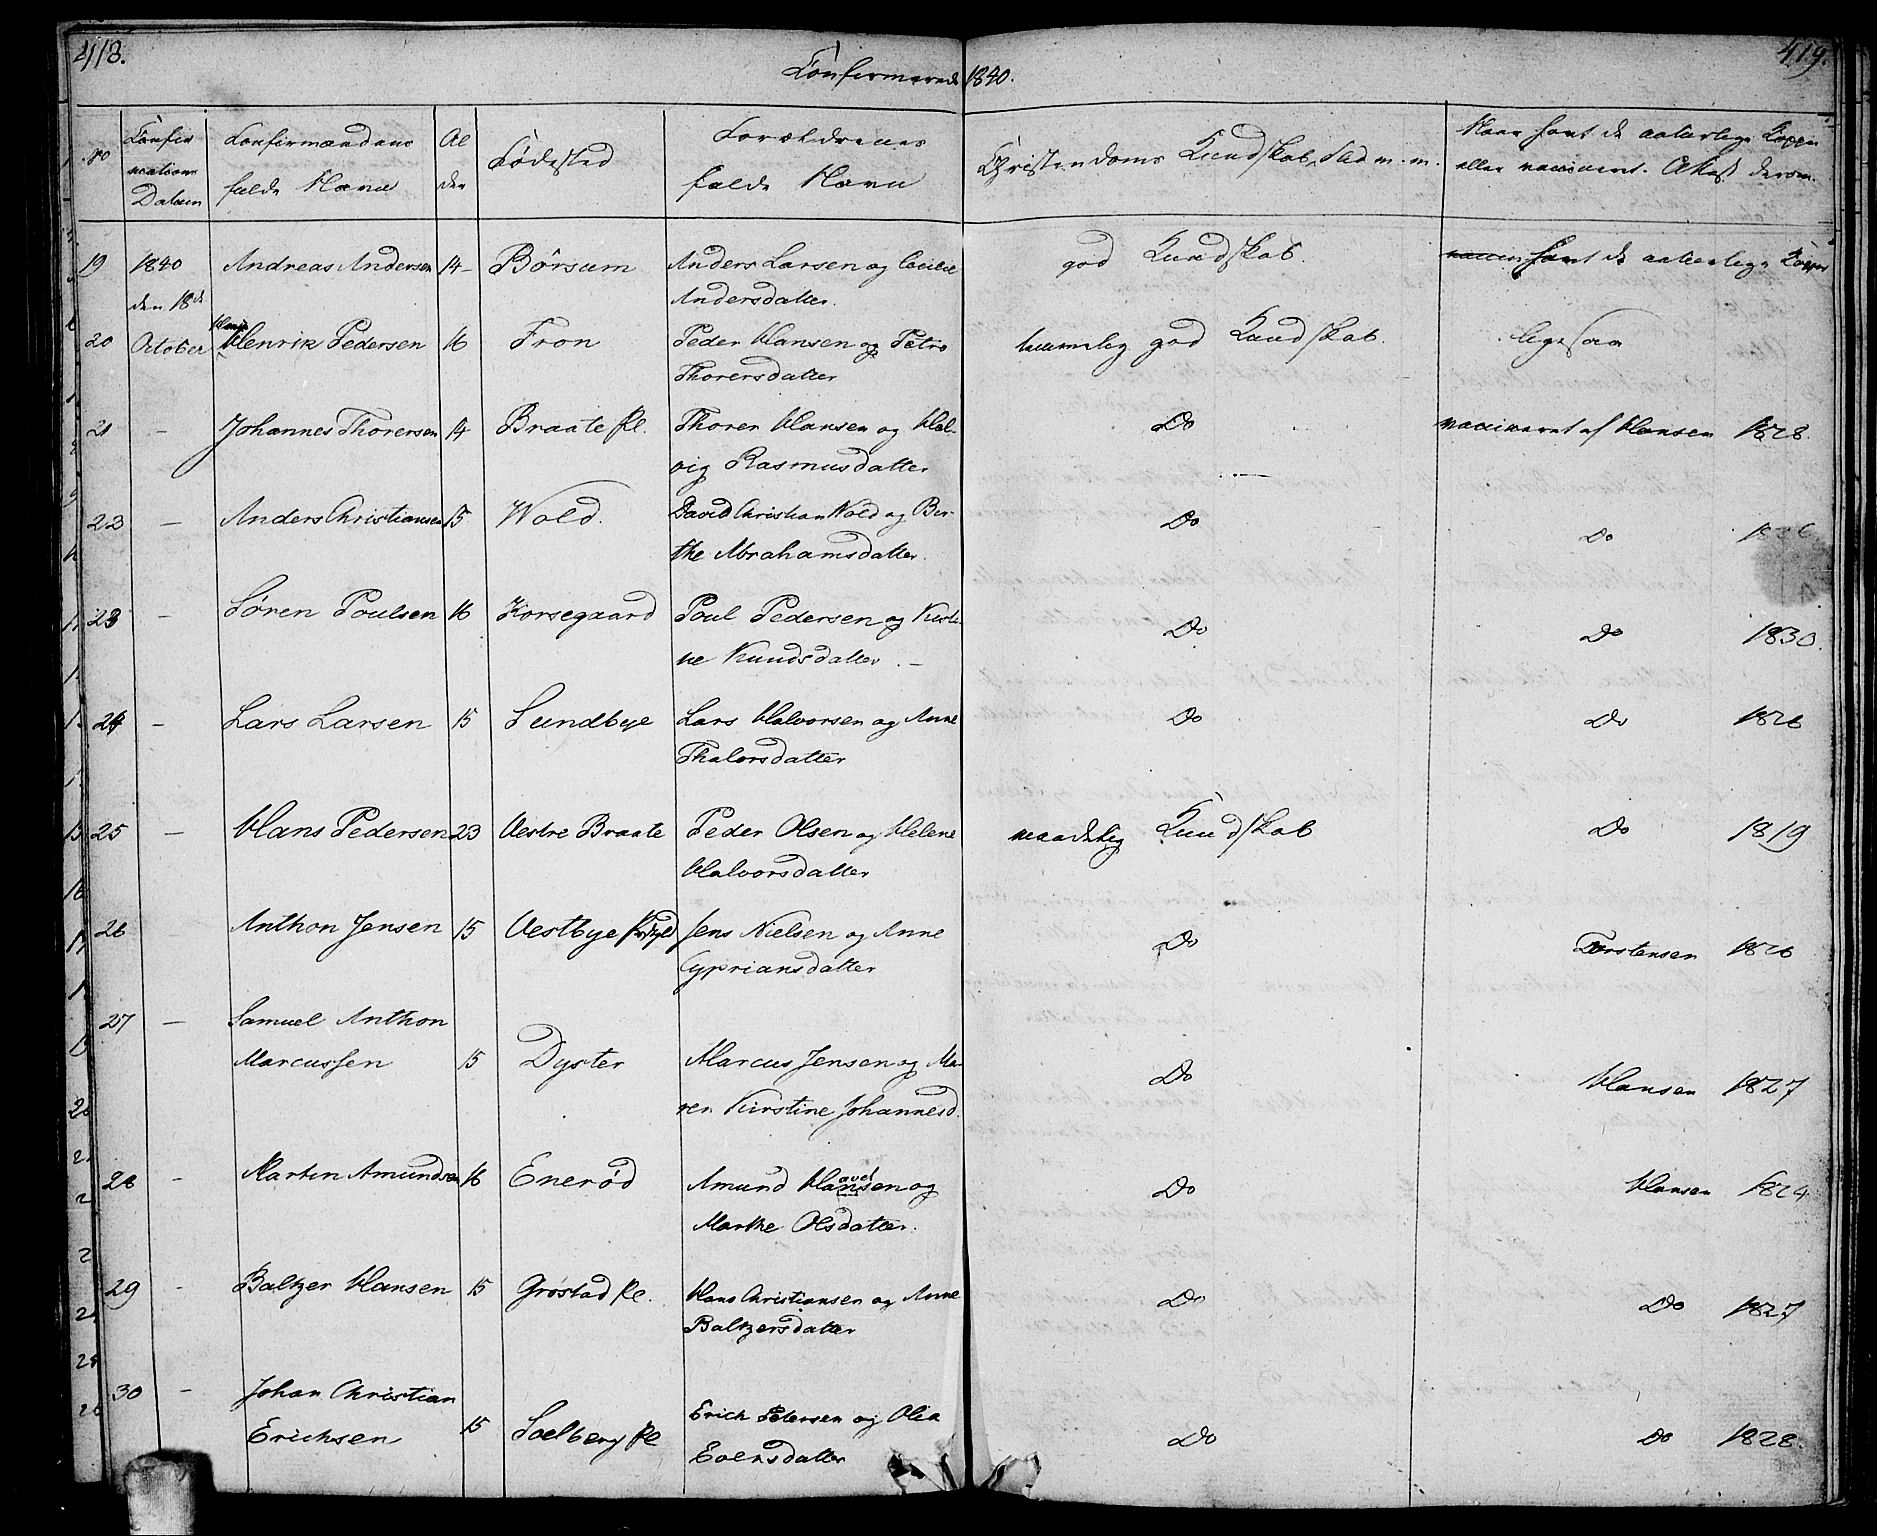 418.
Confirmerede 1840.
419.
No
Confir
mations
Datum
Confirmandens
fulde Navn
Al
der
Fødested
Forældrenes
fulde Navn
Christendoms Kundskab, Flid m. m.
Naar havt de naturlige Kopper
eller vaccineret. Attest derom.
19 1840 Andreas Andersen 14 Börsum Anders Larsen og Cecilie god Kundskab. havt de naturlige Kopper
den 18de Andersdatter.
20 October Henrik Pedersen 16 Fron Peder Hansen og Petro temmelig god Kundskab. ligesaa
Thorersdatter
21 - Johannes Thorersen 14 Braate Pl. Thorer Hansen og Hel- Do vaccineret af Hansen 1828.
vig Rasmusdatter
22 - Anders Christiansen 15 Wold. David Christian Wold og Ber- Do Do 1826
the Abrahamsdatter.
23 - Søren Poulsen 16 Korsegaard Poul Pedersen og Kirsti- Do Do 1830.
ne Knudsdatter. -
24 - Lars Larsen 15 Sundbye Lars Halvorsen og Anne Do Do 1826
Thalorsdatter
25 - Hans Pedersen 23 Vestre Braate Peder Olsen og Helene maadelig Kundskab Do 1819
Halvorsdatter
26 - Anthon Jensen 15 Vestbye Jens Nielsen og Anne Do Torstensen 1826
Cypriansdatter
27 - Samuel Anthon
Marcussen 15 Dyster Marcus Jensen og Ma- Do Hansen 1827
ren Kirstine Johannesd.
28 - Martin Amundsen 16 Enerød Amund Hansen og Do Hansen 1824
Marthe Olsdatter.
29 - Baltzer Hansen 15 Grøstad Pl. Hans Christiansen og Anne Do Do 1827
Baltzersdatter
30 - Johan Christian
Erichsen 15 Solberg Pl Erich Petersen og Olea Do Do 1828.
Evensdatter